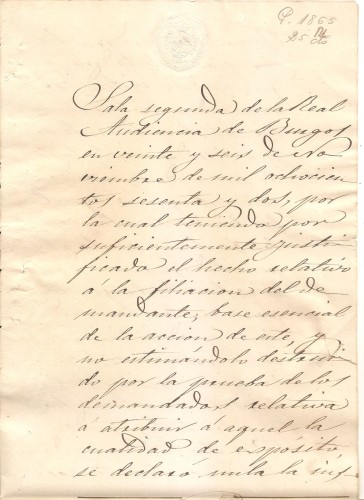 P. 1865
25
Sala segunda de la Real
Audiencia de Burgos
en veinte y seis de No
viembre de mil ochocien
tos sesenta y dos, por
la cual teniendo por
suficientemente justi
ficado el hecho relativo
á la filiacion del de
mandante, base esencial
de la accion de este, y
no estimandolo destrui
do por la prueba de los
demandados relativa
á atribuir á aquel la
cualidad de expósito,
se declaró nula la ins